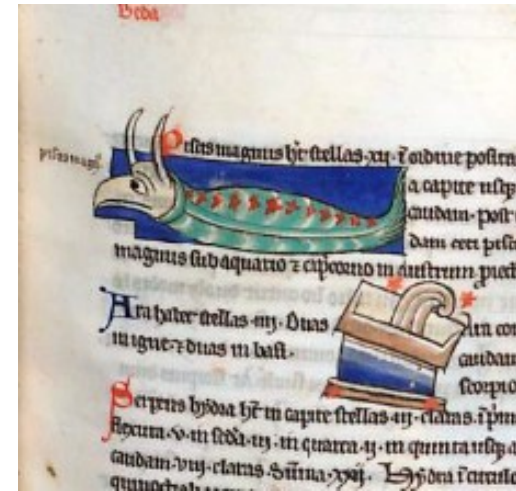 Beda
piscis magn.
Piscis magnus ht stellas. xij. i ordine posita
a capite usq
caudam. post
dam ceti pisci
magnus sub aquario z capcorno in austrum
Ara habet stellas. iiij. Duas
in igne. z duas in basi.
caudam
scorpio
Serpens hydra ht in capite stellas. iij. claras. i prim
flexura. v. in scda. iij. in quarta. ij. in quinta usq a
caudam. viij. claras. Suma. xxij. Hydra i circulo